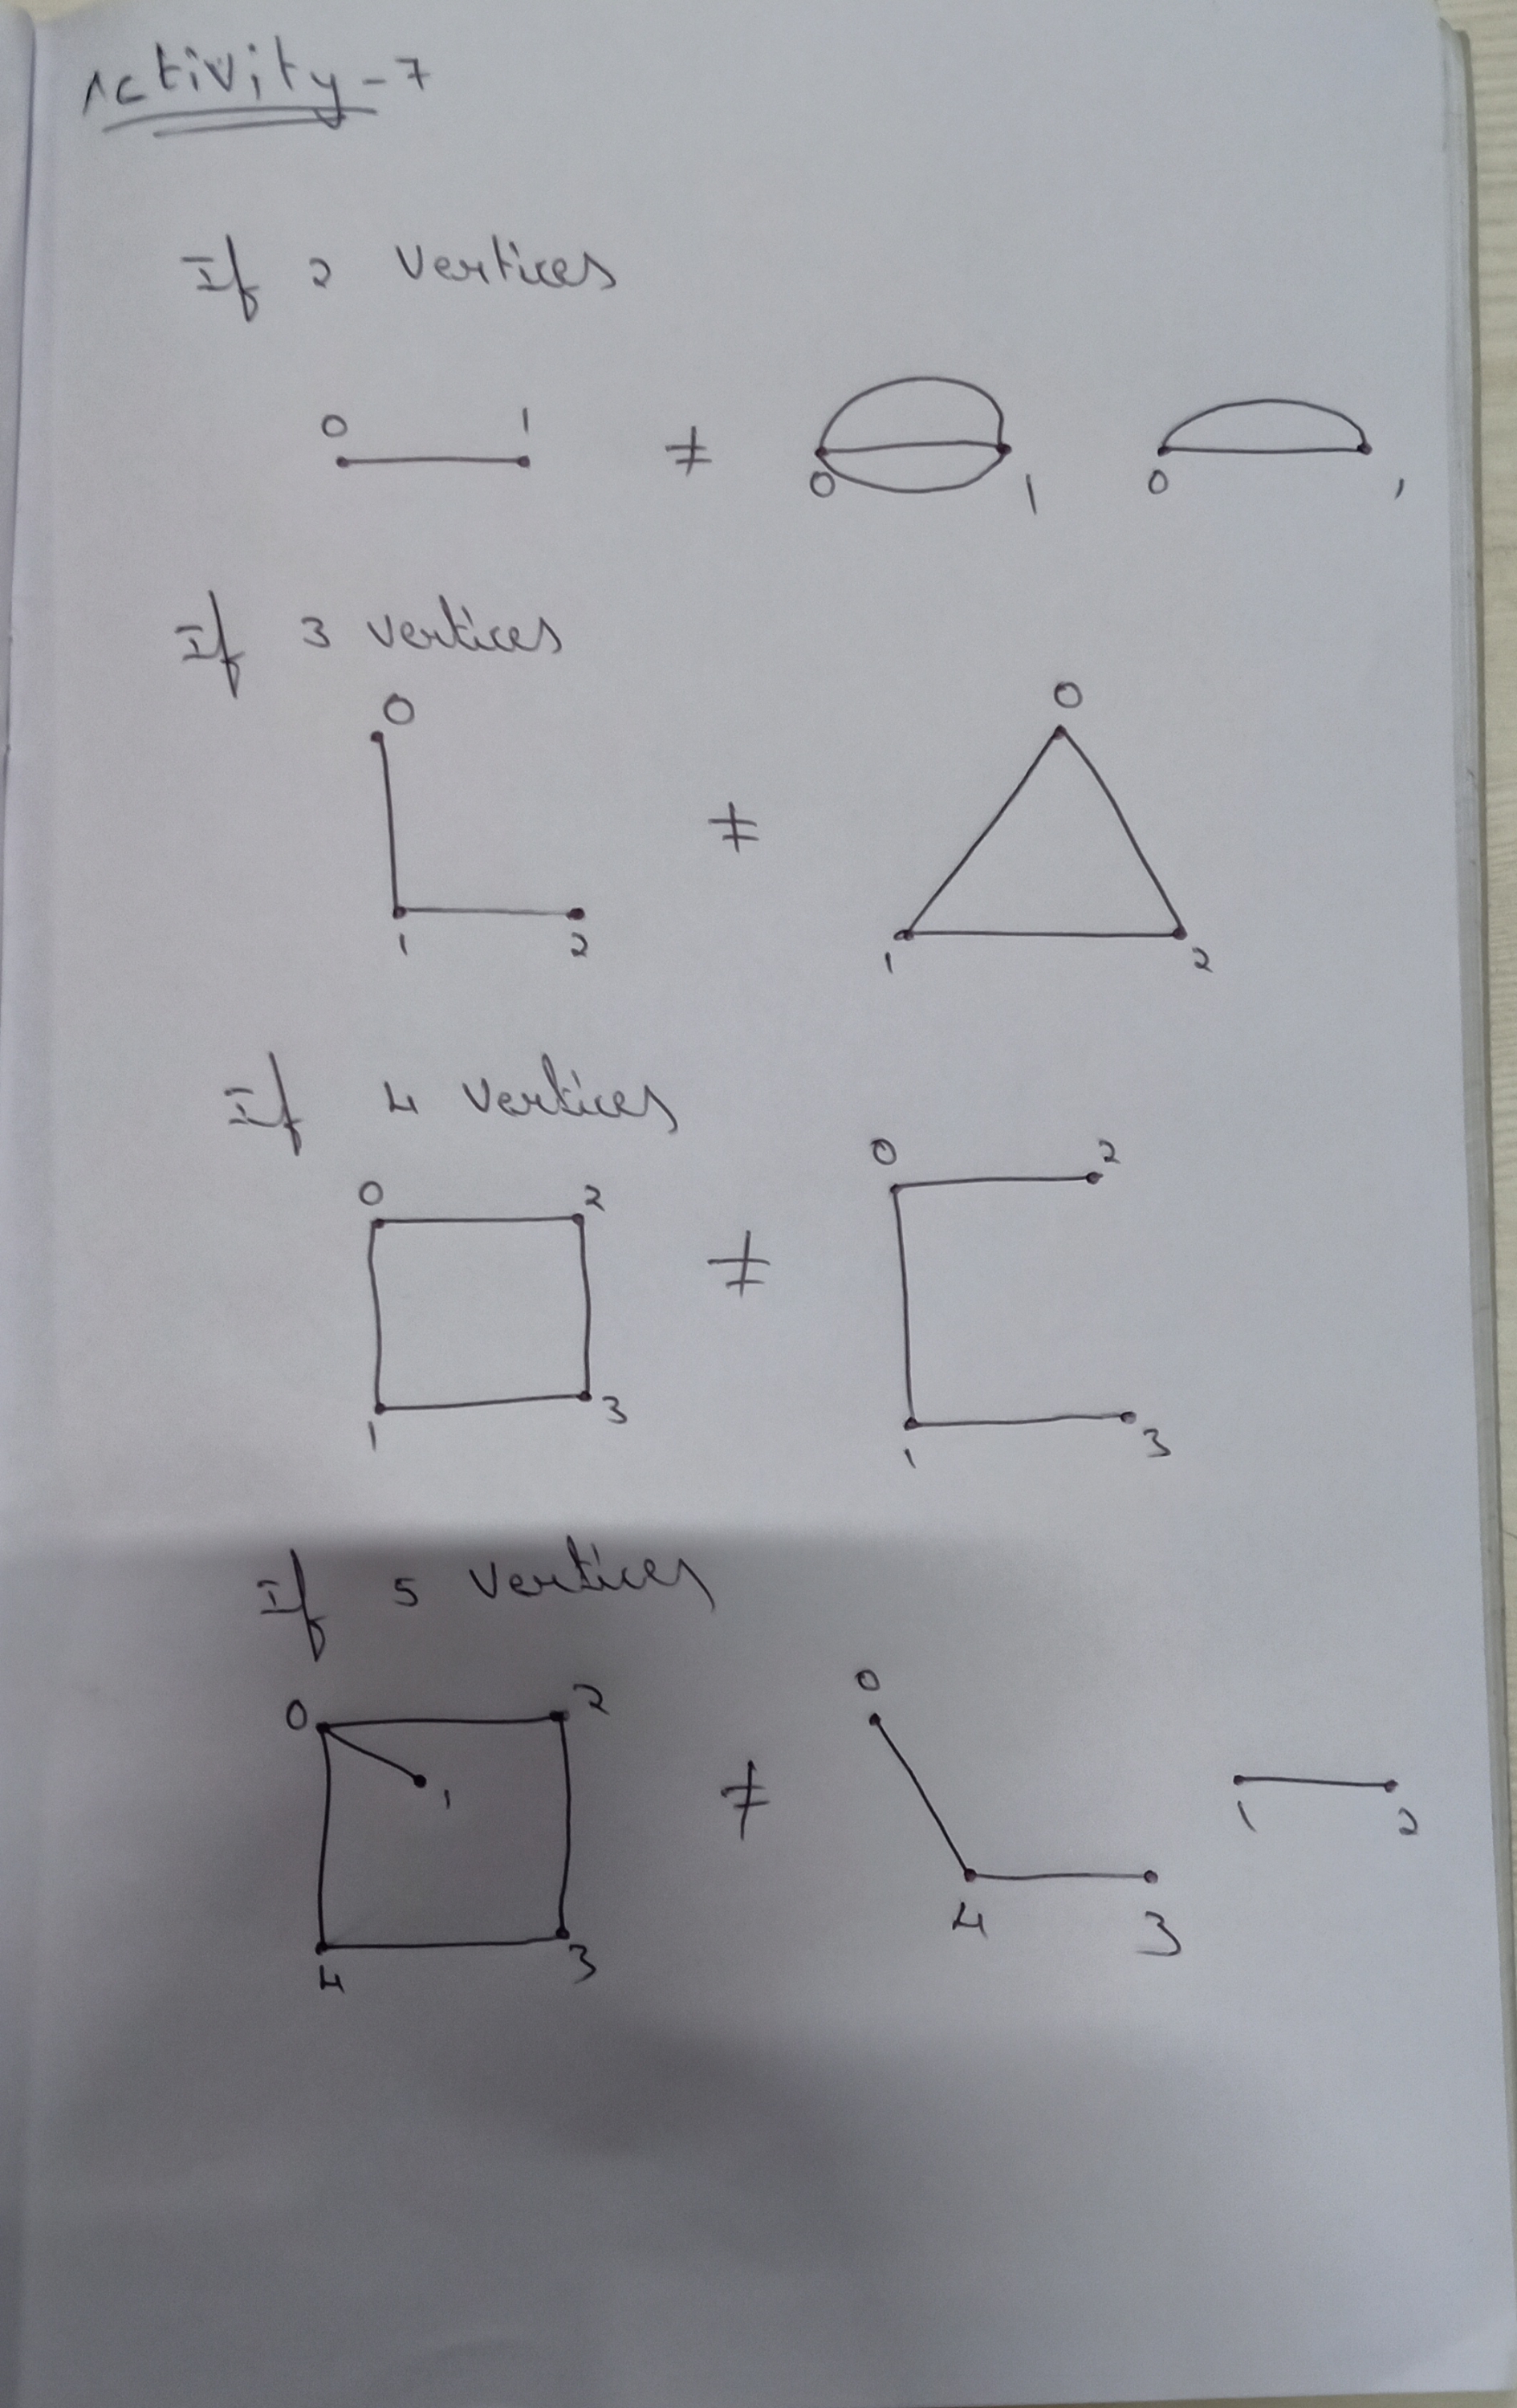 Activity-7
If 2 Vertices
0 1 ≠ 0 1 0 1
If 3 vertices
0 0
≠
1 2 1 2
If 4 vertices
0 2 0 2
≠
1 3 1 3
If 5 vertices
0 2 0
1 ≠ 1 2
4 3 4 3